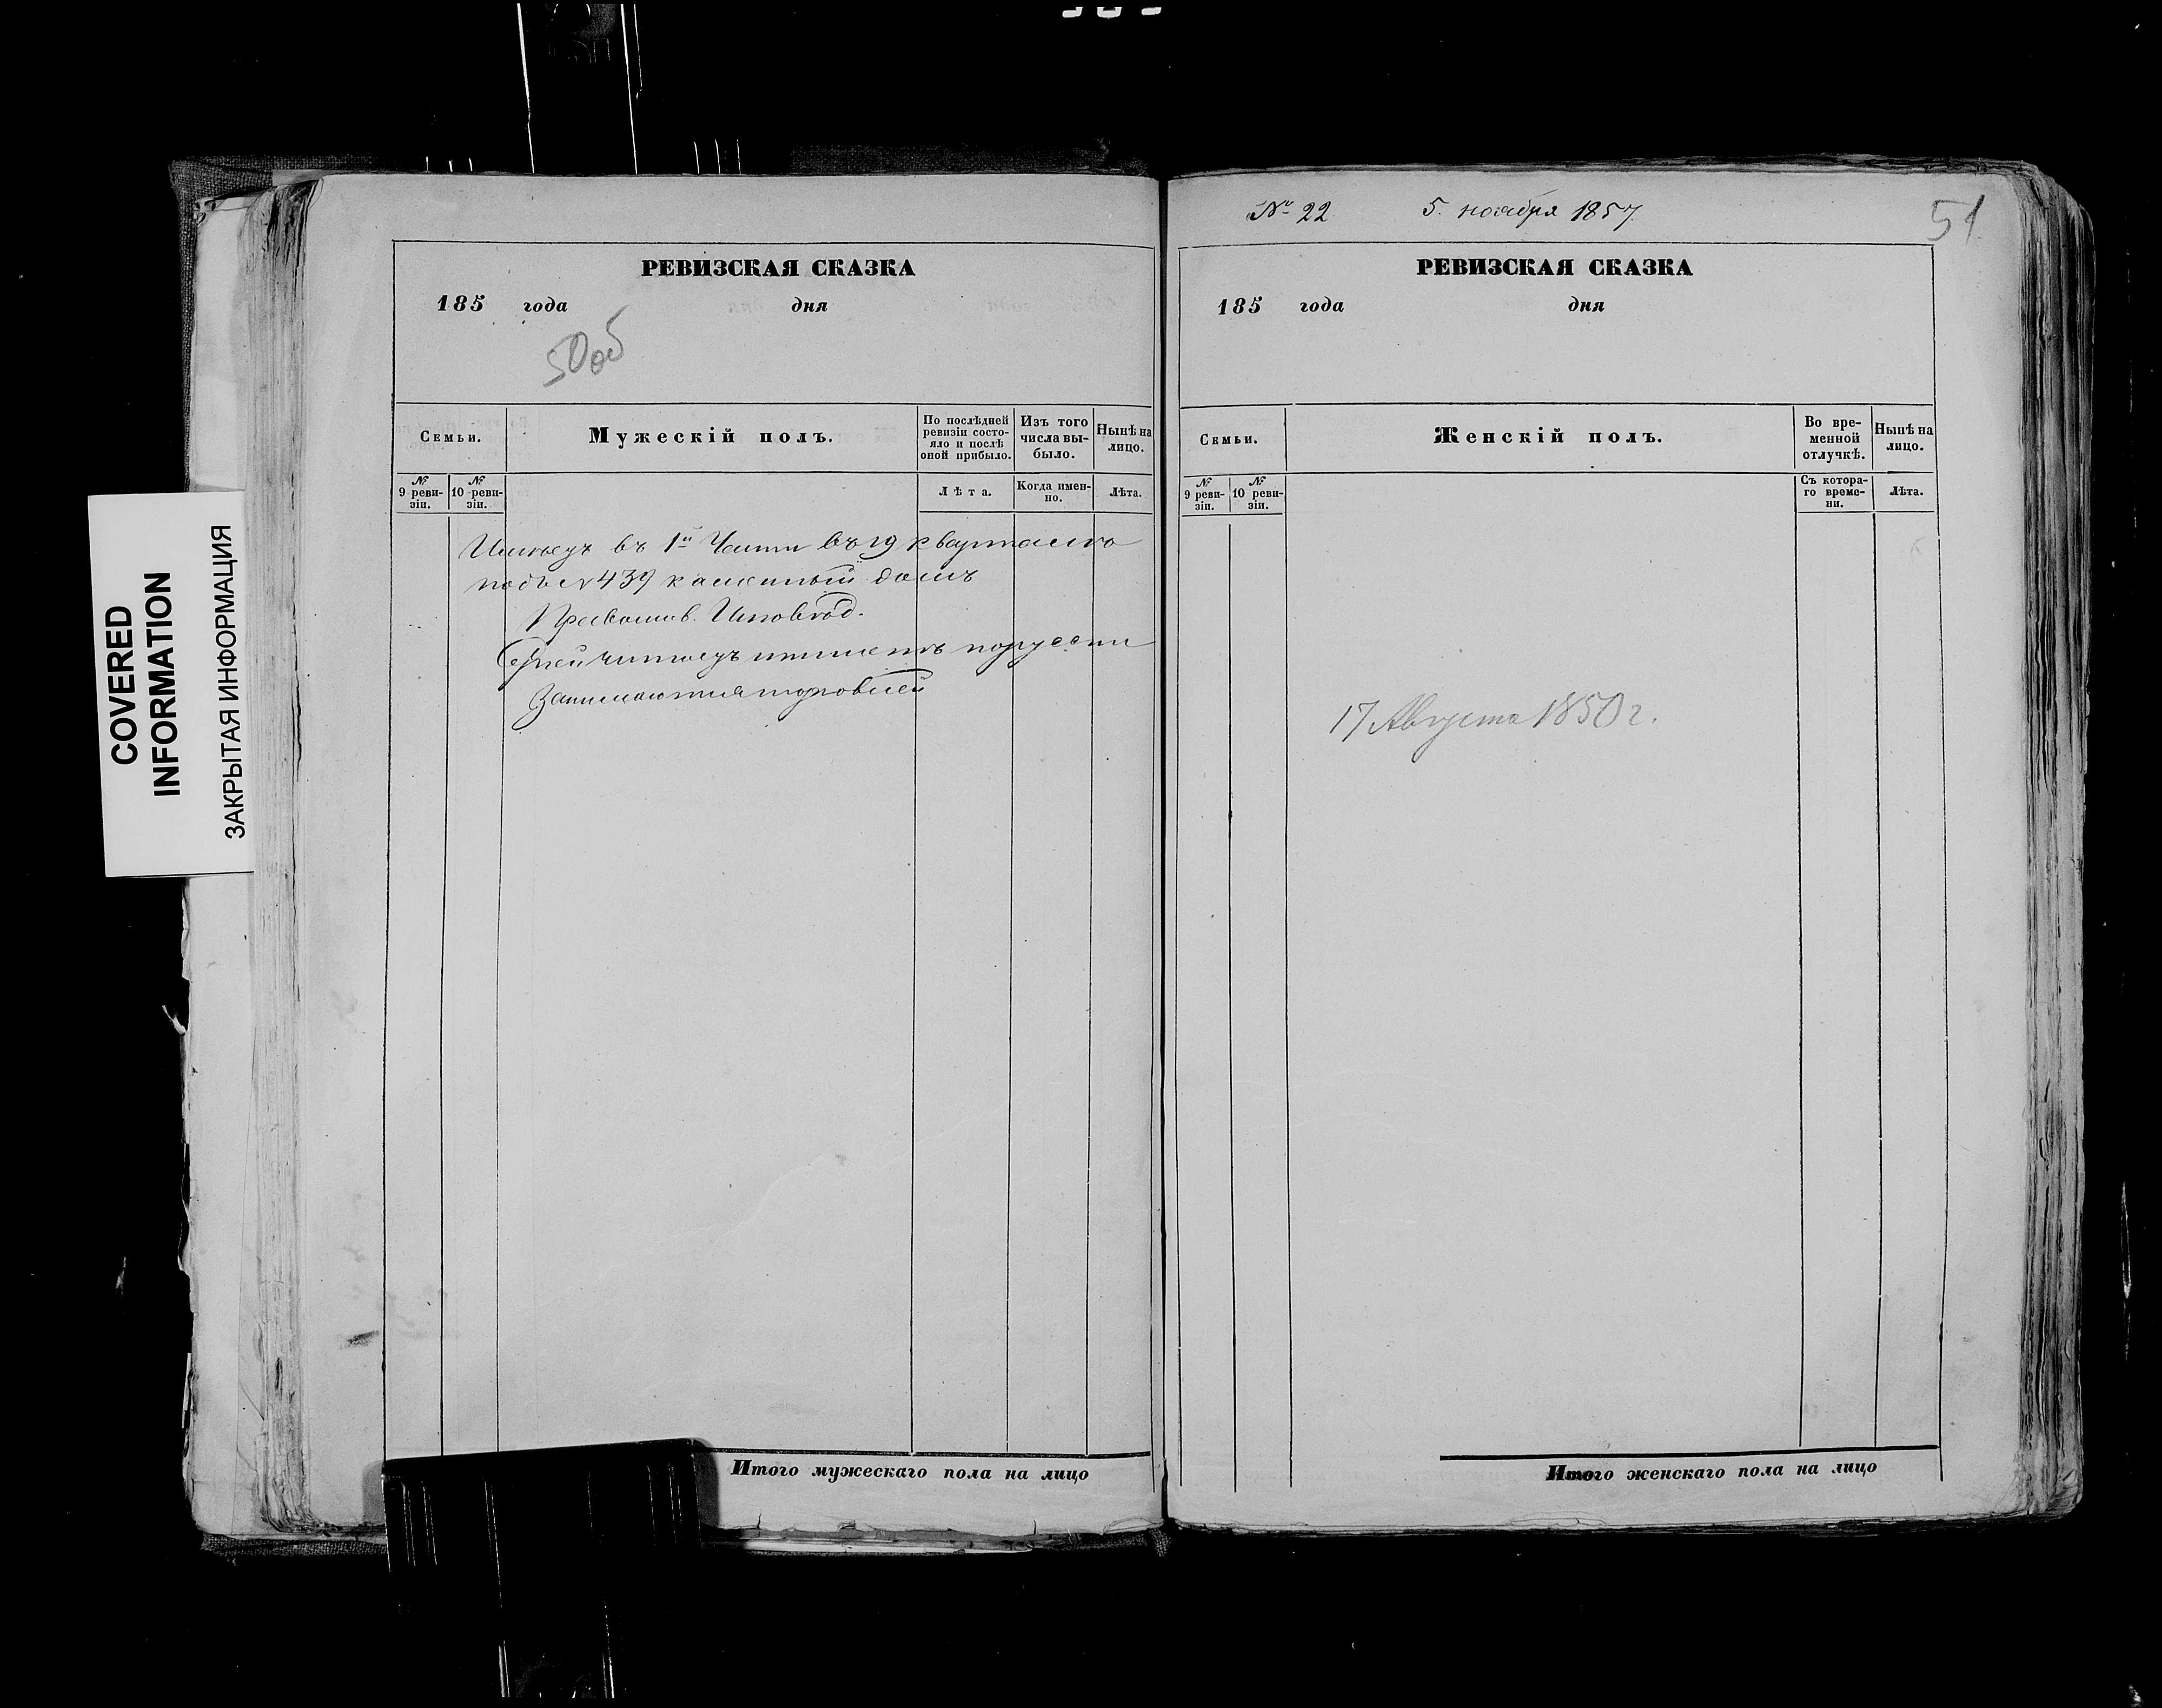 COVERED
INFORMATION
ЗАКРЫТАЯ ИНФОРМАЦИЯ
РЕВИЗСКАЯ СКАЗКА
185 года дня
50об
Семьи.
Мужескій полъ.
По послѣдней
ревизіи состо-
яло и послѣ
оной прибыло.
Изъ того
числа вы-
было.
Нынѣ на
лицо.
№
9 реви-
зіи.
№
10 реви-
зіи.
Лѣта.
Когда имен-
но.
Лѣта.
въ 1й Части въ 19 квартале
подъ № 439 каменный домъ
Православ. Исповѣд.
Сергей читаетъ пишетъ
Занимается торговлей
Итого мужескаго пола на лицо
№ 22 5. ноября 1857
51
РЕВИЗСКАЯ СКАЗКА
185 года дня
Семьи.
Женскій полъ.
Во вре-
менной
отлучкѣ.
Нынѣ на
лицо.
№
9 реви-
зіи.
№
10 реви-
зіи.
Съ котора-
го време-
ни.
Лѣта.
17 Августа 1850 г.
Итого женскаго пола на лицо